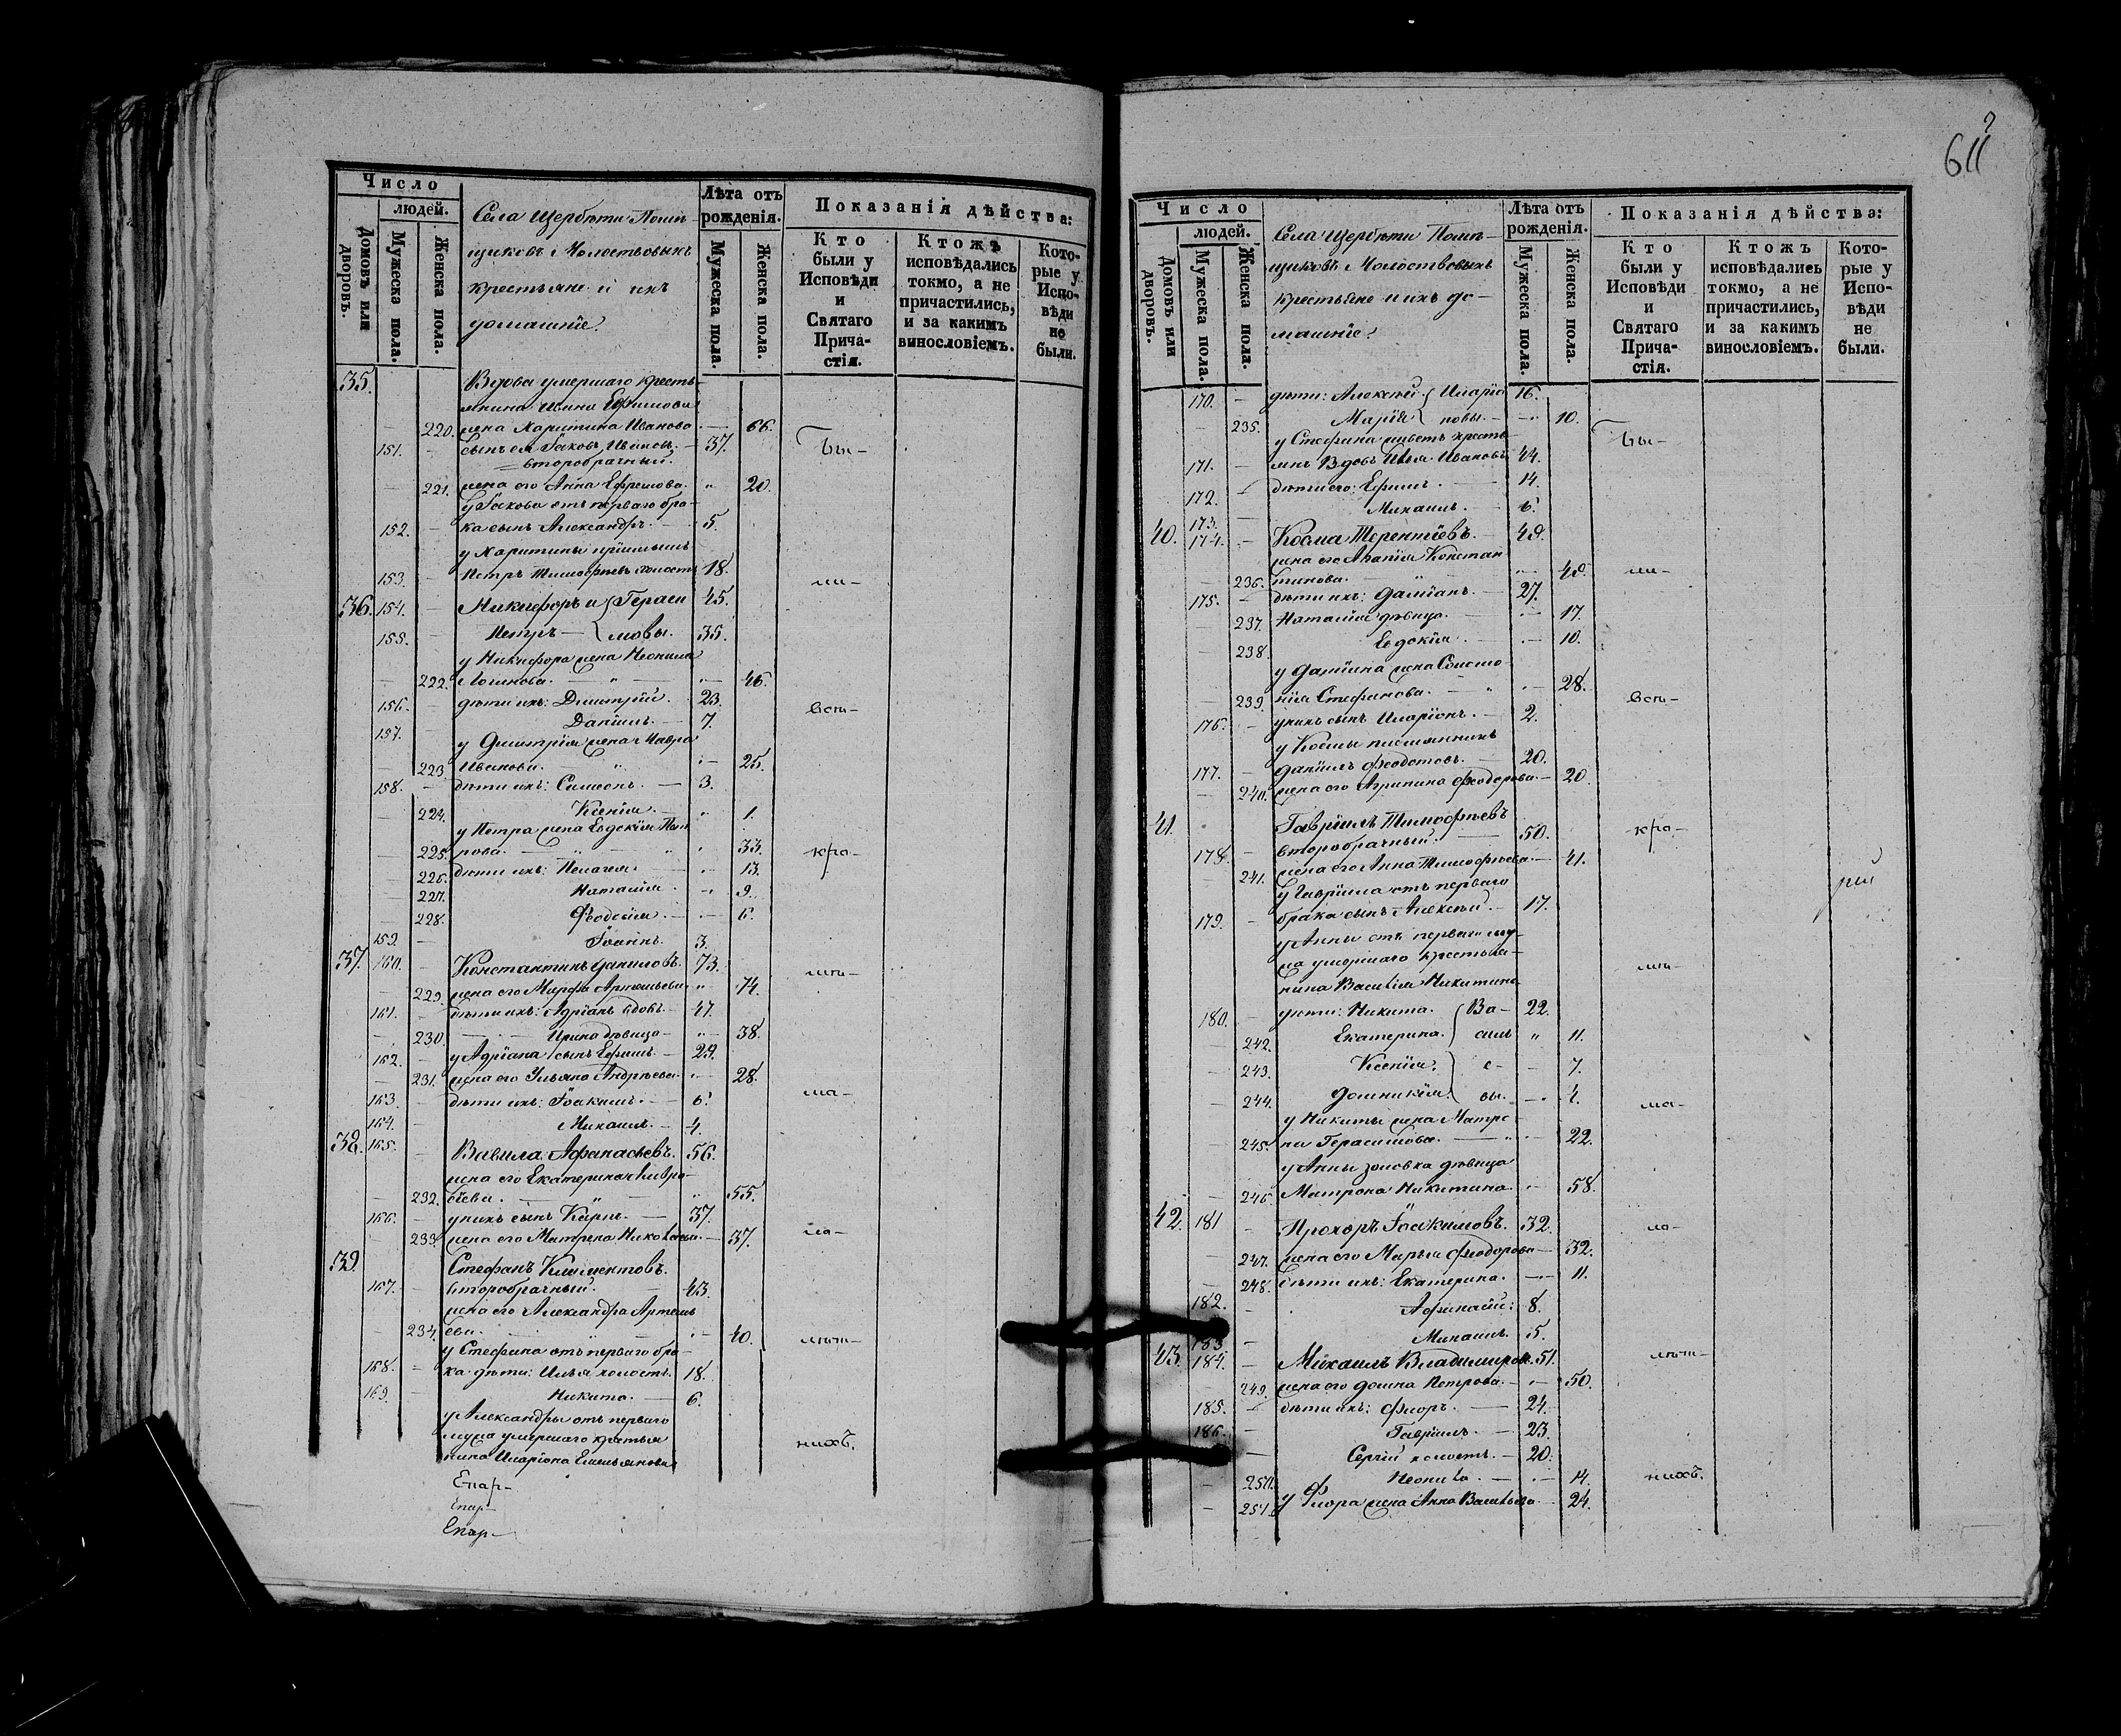 Число
людей.
Домовъ или дворовъ.
Мужеска пола.
Женска пола.
Села Щербѣти Помѣ-
щиковъ Молоствовыхъ
крестьяне и ихъ
домашніе.
Лѣта отъ
рожденія.
Мужеска пола.
Женска пола.
Показанія дѣйства:
Кто
были у
Исповѣди
и
Святаго
Прича-
стія.
Ктожъ
исповѣдались
токмо, а не
причастились,
и за какимъ
винословіемъ.
Кото-
рые у
Испо-
вѣди
не
были.
35. Вдова умершаго кресть-
янина Ивана Ефимова
220. жена Харитина Иванова 66.
151. сынъ ея Іаковъ Ивановъ. 37. Бы-
второбрачный.
221. жена его Анна Ефремова. 20.
у Іакова отъ перваго бра-
152. ка сынъ Александръ. 5.
у Харитины пріимышъ
153. Петръ Тимофѣевъ холостъ 18. ли-
36. 154. Никифоръ и Гераси 45.
155. Петръ мовы. 35.
у Никифора жена Неонила
222. Логинова. 46.
156. дѣти ихъ: Димитрій. 23. всѣ-
157. Даніилъ. 7.
у Димитрія жена Мавра
223. Иванова. 25.
158. дѣти ихъ: Симеонъ. 3.
224. Ксенія. 1.
у Петра жена Евдокія Пет
225. рова. 33. кро-
226. дѣти ихъ: Пелагея. 13.
227. Наталія. 9.
228. Феодосія. 6.
159. Іоаннъ. 3.
37. 160. Константинъ Даниловъ. 73. мѣ-
229. жена его Марфа Артемьева. 74.
161. дѣти ихъ: Адріанъ вдовъ 47.
230. Ирина дѣвица 38.
162. у Адріана сынъ Ефимъ. 29.
231. жена его Ульяна Андрѣева. 28.
163. дѣти ихъ: Іоакимъ. 6. ма-
164. Михаилъ. 4.
38. 165. Вавила Афанасьевъ. 56.
жена его Екатерина Лавре-
232. 55.
166. у нихъ сынъ Карпъ. 37.
233. жена его Матрена Николаева. 37. ло-
39. Стефанъ Климентовъ.
167. второбрачный. 43.
жена его Александра Артемь
234. ева. 40. лѣт-
у Стефана отъ перваго бра-
168. ка дѣти: Илья холостъ. 18.
169. Никита. 6.
у Александры отъ перваго
мужа умершаго крестья
нина Иларіона Емельянова нихъ.
Епар-
Епар-
Епар-
611
Число
людей.
Домовъ или дворовъ.
Мужеска пола.
Женска пола.
Села Щербѣти Помѣ-
щиковъ Молоствовыхъ
крестьяне и ихъ до-
машніе.
Лѣта отъ
рожденія.
Мужеска пола.
Женска пола.
Показанія дѣйства:
Кто
были у
Исповѣди
и
Святаго
Прича-
стія.
Ктожъ
исповѣдались
токмо, а не
причастились,
и за какимъ
винословіемъ.
Кото-
рые у
Испо-
вѣди
не
были.
170. дѣти: Алексѣй Иларіо 16.
235. Марія новы. 10.
у Стефана живетъ кресть- Бы-
171. янъ Вдовъ Илья Ивановъ 44.
172. дѣти его: Ефимъ. 14.
173. Михаилъ. 6.
40. 174. Косма Терентіевъ. 49.
жена его Констан
236. тинова. ли-
175. дѣти ихъ: Даміанъ. 27.
237. Наталія дѣвица 17.
238. Евдокія. 10.
у Даміана жена
239. Стефанова. 28. всѣ-
176. у нихъ сынъ Иларіонъ. 2.
у Космы племянникъ
177. Даніилъ Феодотовъ. 20.
240. жена его Агрипина Феодорова 20
41. Гавріилъ Тимофѣевъ кро-
178. второбрачный. 50.
241. жена его Анна Тимофѣева. 41.
у Гавріила отъ перваго
179. брака сынъ Алексѣй. 17.
у Анны отъ перваго му-
жа умершаго крестья- мѣ-
нина Василія Никитина
180. дѣти: Никита. Ва- 22.
242. Екатерина. силь 11.
243. Ксенія. е- 7.
244. Домникія. вы. 4. ма-
у Никиты жена Матре
245. на Герасимова. 22.
у Анны золовка дѣвица
246. Матрона Никитина. 58.
42. 181 Прохоръ Іоакимовъ. 32. ло-
247. жена его Марья Феодорова 32.
248. дѣти ихъ: Екатерина. 11.
182. Афанасій: 8.
183. Михаилъ. 5.
43. 184. Михаилъ Владимиров. 51. лѣт-
249. жена его Домна Петрова. 50.
185. дѣти ихъ: Флоръ. 24.
186. Гавріилъ. 23.
Сергій холостъ. 20.
250. Неонила. 14. нихъ.
251. у Флора жена Анна Васильева 24.